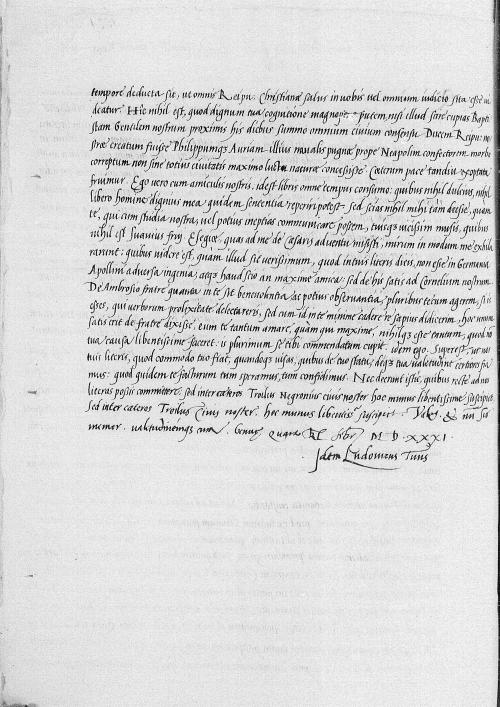 tempore deducta sit, ut omnis Reipu. Christianæ salus in uobis uel omnium iudicio sita esse ui
deatur. Hic nihil est, quod dignum tua cognitione magnopere putem, nisi illud scire cupias Bapti
stam Gentilem nostrum proximis his diebus summo omnium ciuium consensu Ducem Reipu: no
stræ creatum fuisse Philippinumq Auriam illius naualis pugnæ prope Neapolim confectorem, morbo
correptum non sine totius ciuitatis maximo luctu naturæ concessisse. Cæterum pace tandiu exoptata
fruimur. Ego uero cum amiculis nostris, idest libris omne tempus consumo: quibus nihil dulcius, nihil
libero homine dignius mea quidem sententia reperiri potest. sed scias nihil mihi tam deesse, quam
te, qui cum studia nostra, uel potius ineptias communicare possem, tuisq uicissim musis, quibus
nihil est suauius frui. Elegiæ, quas ad me de Cæsaris aduentu misisti, mirum in modum me exhila
rarunt: quibus uidere est, quam illud sit uerissimum, quod in tuis literis dicis, non esse in Germania
Apollini aduersa ingenia: atq haud scio an maxime amica. sed de his satis ad Cornelium nostrum.
De Ambrosio fratre quanta in te sit beneuolentia ac potius obseruantia, pluribus tecum agerem, si is
esses, qui uerborum prolixitate delectareris, sed cum id in te minime cadere re sæpius didicerim, hoc unum
satis erit de fratre dixisse, eum te tantum amare, quam qui maxime, nihilq esse tantum, quod non
tua causa libentissime faceret. is plurimum se tibi commendatum cupit. idem ego. Superest, ut nos
tuis literis, quod commodo tuo fiat, quandoq uisas, quibus de tuo statu, deq tua ualetudine certiores fia
mus: quod quidem te facturum tum speramus, tum confidimus. Nec deerunt istic, quibus recte ad nos
literas possis committere. sed inter cæteros Troilus Negronius ciuis noster hoc munus libentissime suscipiet.
sed inter cæteros Troilus Ciuis noster hoc munus libentiss. suscipiet. Vale, & nostri sis
memor. ualetudinemq cura. Genuæ quarto Kl. M D XXXI.
Idem Ludouicus Tuus